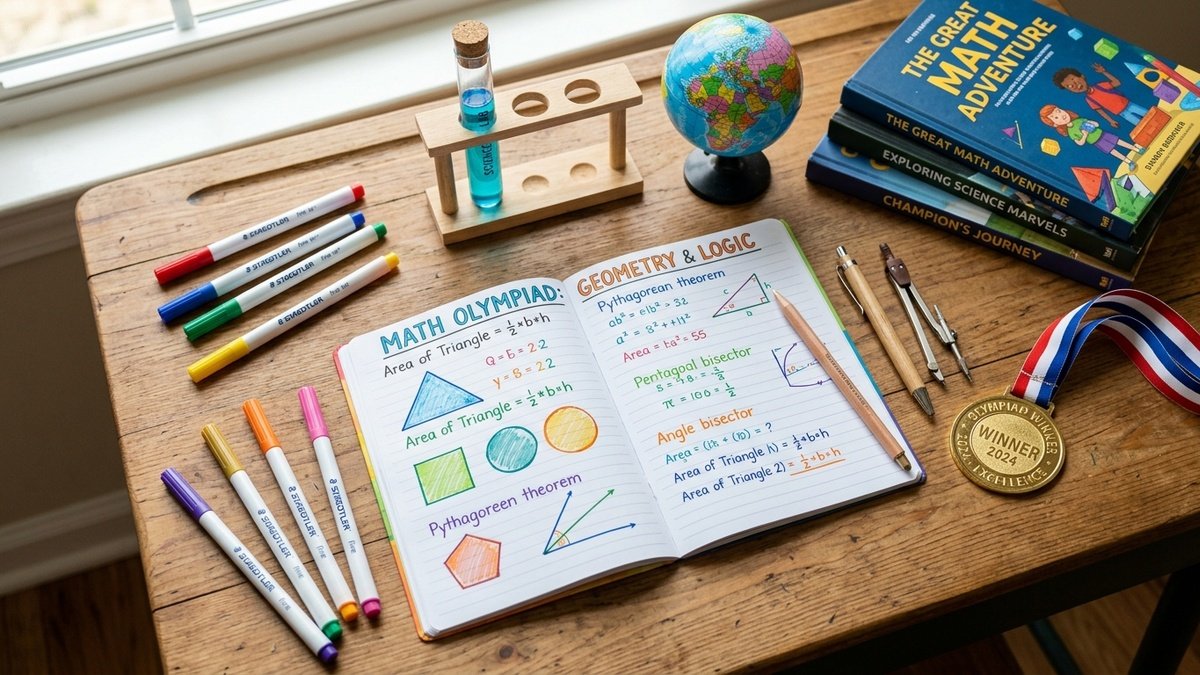 MATH OLYMPIAD:
Area of Triangle = ½*b*h
Q = 6 = 2.2
y = 8 = 2.2
Area of Triangle = ½*b*h
Pythagoreen theorem
GEOMETRY & LOGIC
Pythagorean theorem
a² = 8² + +1²
Pentagoal bisector
π = 100 = ½
Angle bisector
Area of Triangle 1) = ½*b*h
Area of Triangle 2) = ½*b*h
STAEDTLER
STAEDTLER
STAEDTLER
STAEDTLER
STAEDTLER
STAEDTLER
STAEDTLER
STAEDTLER
fine
fine
SCIENCE LAB
THE GREAT
MATH
ADVENTURE
THE GREAT MATH ADVENTURE
EXPLORING SCIENCE MARVELS
CHAMPION'S JOURNEY
OLYMPIAD WINNER
WINNER
2024
EXCELLENCE